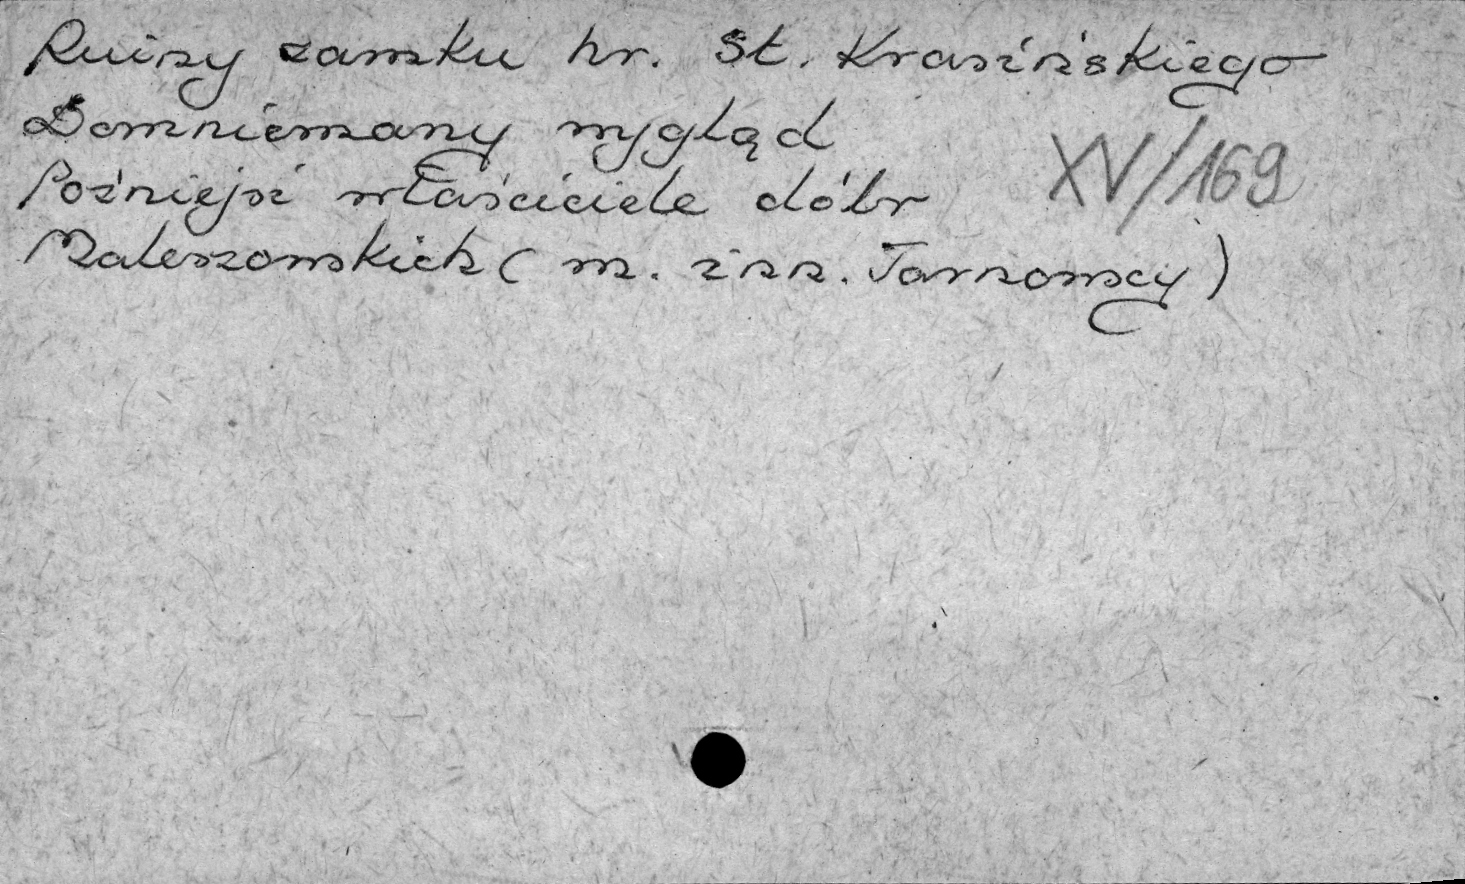 Ruiny zamku hr. St. Krasińskiego
Domniemany wygląd
XV/169
Poźniejsi właściciele dóbr
Maleszowskich (m. inn. Tarnowscy)